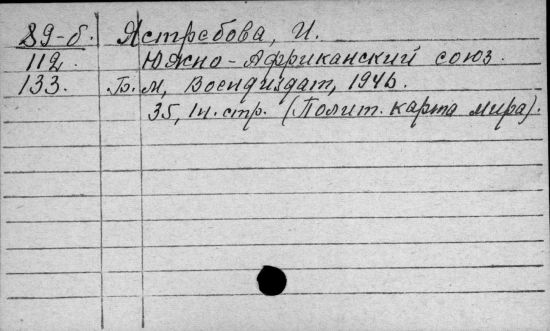 89-б. Ястребова, И.
112. Южно-Африканский союз.
133. Б. м, Воениздат, 1946.
35, 1н. стр. (Полит. карта мира).